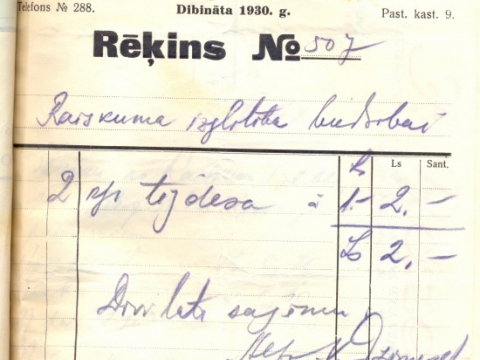 Telefons № 288. Dibināta 1930. g. Past. kast. 9.
Rēķins № 507
Raiskuma izglītība biedrībai
Ls Ls Sant.
2 tējdesa à 1.- 2.-
Ls 2.-
Divi lati saņēmu